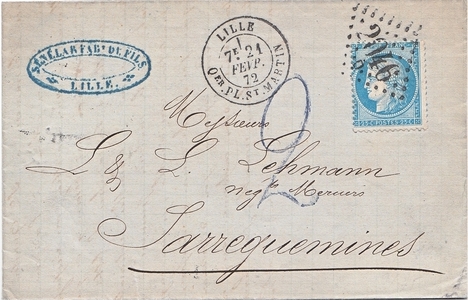 SÉNÉLAR FABT. DE FILS
LILLE.
LILLE
1
7E 21
FÉVR.
72
QER DE ST. MARTIN
2046
25 C POSTES 25 C
2
Messieurs
L & L. Lehmann
negts Merciers
Sarreguemines